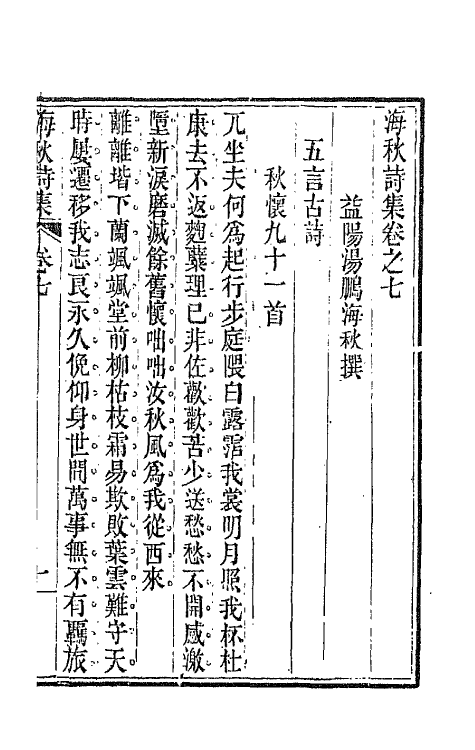 海秋詩集卷之七
益陽湯鵬海秋撰
五言古詩
秋懷九十一首
兀坐夫何為起行步庭隈白露霑我裳明月照我杯杜
康去不返麴櫱理已非佐歡歡苦少送愁愁不開感激
墮新淚磨滅餘舊懷咄咄汝秋風為我從西來
離離堦下蘭颯颯堂前柳枯枝霜易欺敗葉雲難守天
時屢遷移我志良永久俛仰身世間萬事無不有羈旅
海秋詩集 卷之七 一